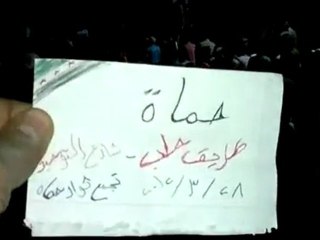 حماة
طريق حلب - شارع التوحيد
٢٠١٢/٣/٢٨ تجمع ثوار حماة